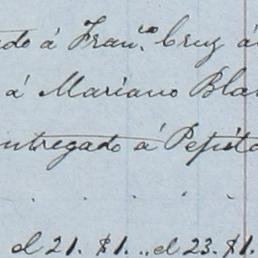 ado á Fran.co Cruz á
á Mariano Blan
ntregado á Pepito
. . . . .
el 21. $1. „ el 23. $1.